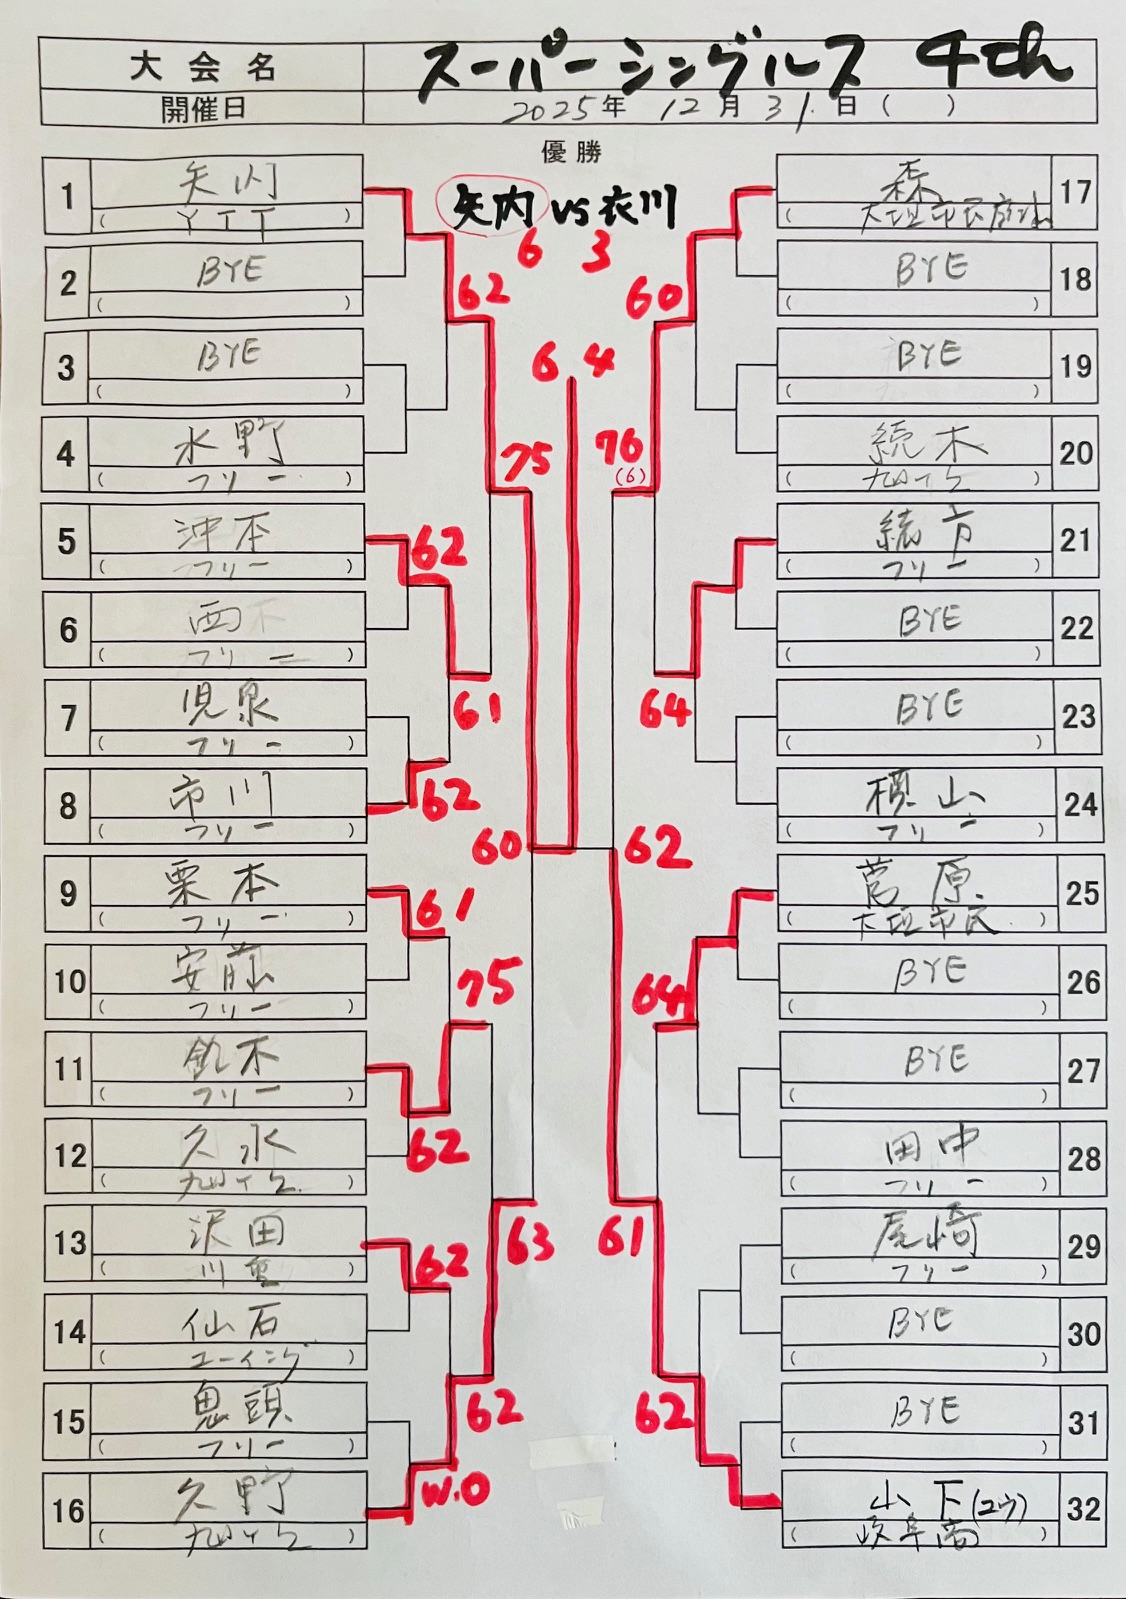 大会名 スーパーシングルス 4th
開催日 2025年 12月 31日 ( )
優勝
矢内 vs 衣川
6 3
1 矢内
( YTT )
2 BYE
( )
3 BYE
( )
4 水野
( フリー )
5 沖本
( フリー )
6 西
( フリー )
7 児泉
( フリー )
8 市川
( フリー )
9 栗本
( フリー )
10 安藤
( フリー )
11 鈴木
( フリー )
12 久永
( )
13 沢田
( )
14 仙石
( ユーイング )
15 鬼頭
( フリー )
16 久野
( )
62
75
62
61
62
60
61
75
62
63
62
62
W.O
6 4
60
76
(6)
64
62
64
61
62
17 森
( 大垣市民 )
18 BYE
( )
19 BYE
( )
20 続木
( )
21 緒方
( フリー )
22 BYE
( )
23 BYE
( )
24 横山
( フリー )
25 葛原
( 大垣市民 )
26 BYE
( )
27 BYE
( )
28 田中
( フリー )
29 尾崎
( フリー )
30 BYE
( )
31 BYE
( )
32 山下(ユウ)
( 岐阜商 )